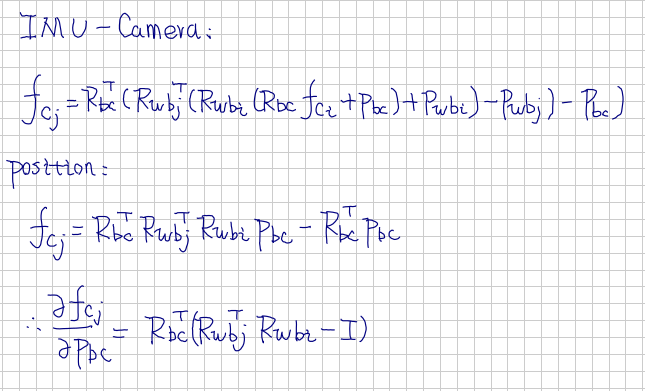 IMU - Camera:
f_{c_j} = R_{bc}^T (R_{wb_j}^T (R_{wb_i} (R_{bc} f_{c_i} + p_{bc}) + p_{wb_i}) - p_{wb_j}) - p_{bc})
position:
f_{c_j} = R_{bc}^T R_{wb_j}^T R_{wb_i} p_{bc} - R_{bc}^T p_{bc}
∴ ∂f_{c_j} / ∂p_{bc} = R_{bc}^T (R_{wb_j}^T R_{wb_i} - I)